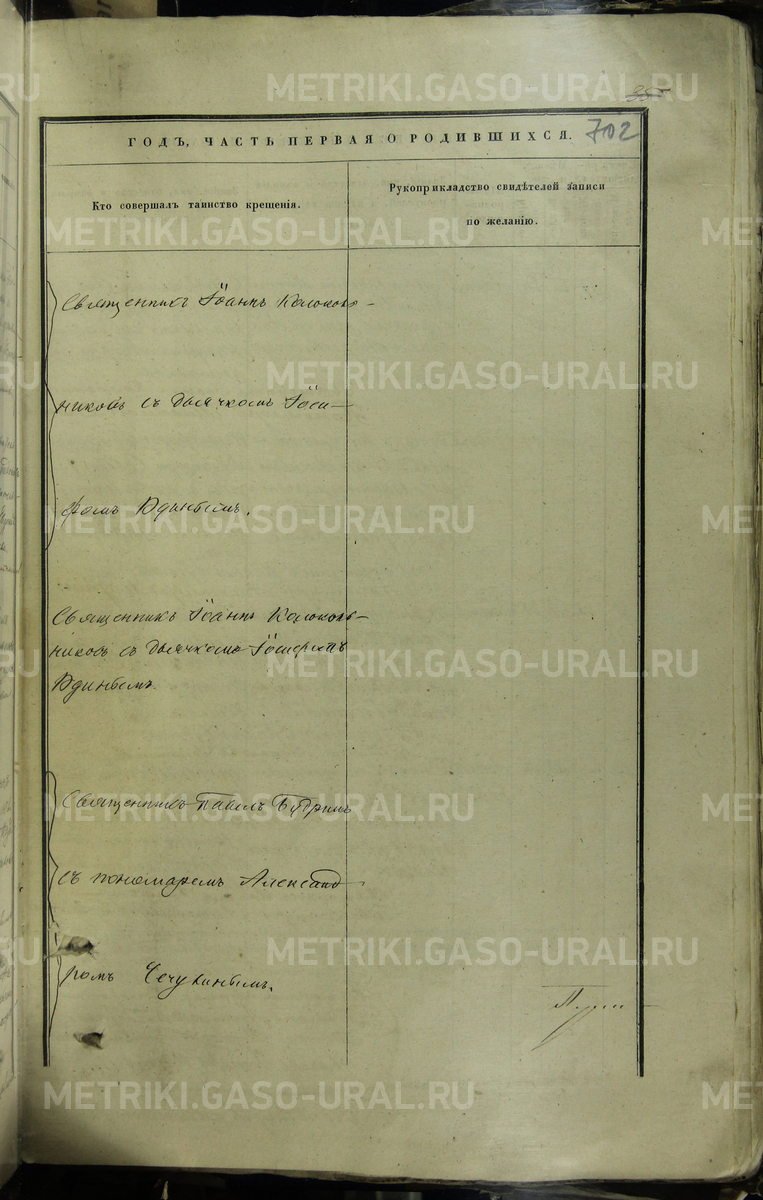 METRIKI.GASO-URAL.RU
35
702
ГОДЪ, ЧАСТЬ ПЕРВАЯ О РОДИВШИХСЯ.
Кто совершалъ таинство крещенія.
Рукоприкладство свидѣтелей записи
по желанію.
Священникъ Іоаннъ Колоколь-
никовъ съ дьячкомъ Іоси-
фомъ
Священникъ Іоаннъ Колоколь-
никовъ съ дьячкомъ Іосифомъ
Священникъ Павелъ
съ пономаремъ Александ-
ромъ Чечулинымъ.